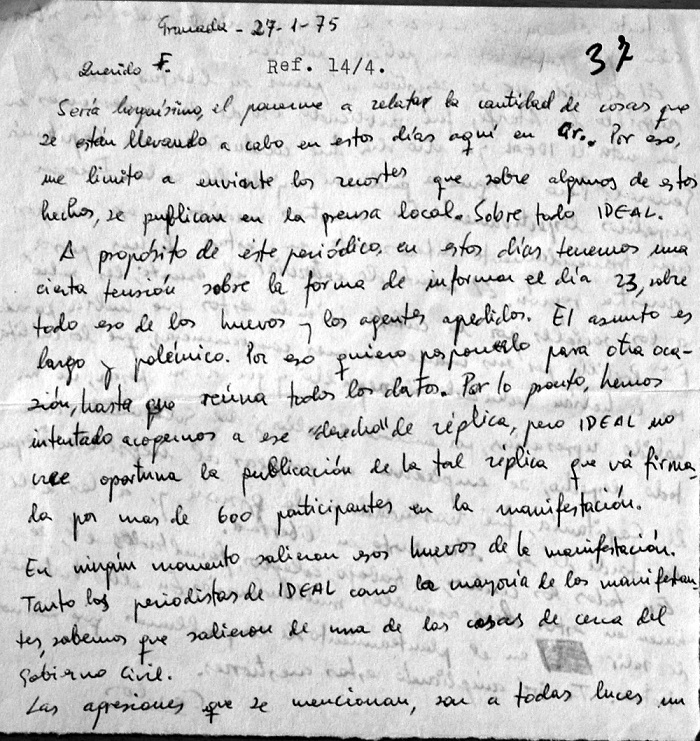 Granada - 27-1-75
37
Querido F. Ref. 14/4.
Sería larguísimo, el ponerme a relatar la cantidad de cosas que
se están llevando a cabo en estos días aquí en Gr.. Por eso,
me limito a enviarte los recortes que sobre algunos de estos
hechos, se publican en la prensa local. Sobre todo IDEAL.
A propósito de este periódico, en estos días tenemos una
cierta tensión sobre la forma de informar el día 23, sobre
todo eso de los huevos y los agentes agredidos. El asunto es
largo y polémico. Por eso quiero posponerlo para otra oca-
sión, hasta que reúna todos los datos. Por lo pronto, hemos
intentado acogernos a ese "derecho" de réplica, pero IDEAL no
cree oportuna la publicación de la tal réplica que vá firma-
da por mas de 600 participantes en la manifestación.
En ningún momento salieron esos huevos de la manifestación.
Tanto los periodistas de IDEAL como la mayoría de los manifestan-
tes, sabemos que salieron de una de las casas de cerca del
Gobierno Civil.
Las agresiones que se mencionan, son a todas luces un